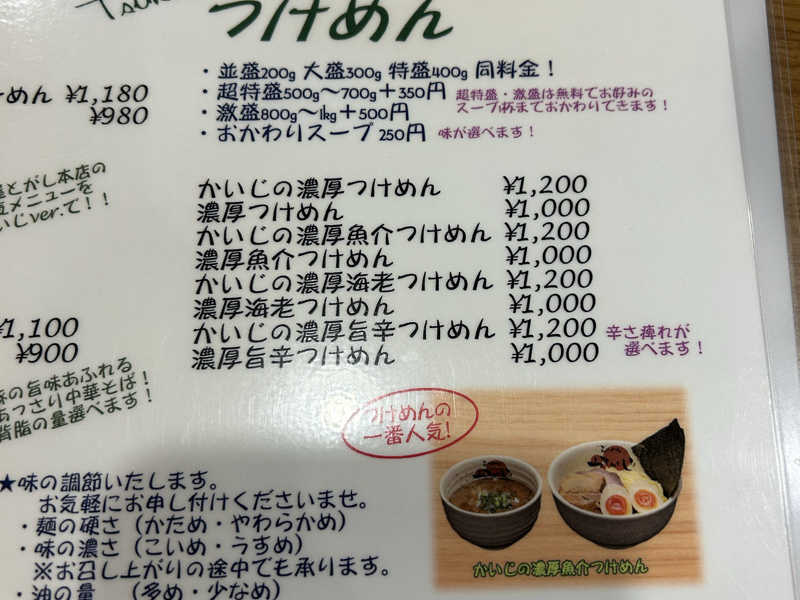 つけめん
・並盛200g 大盛300g 特盛400g 同料金！
・超特盛500g〜700g＋350円
超特盛・激盛は無料でお好みの
スープ1杯までおかわりできます！
・激盛800g〜1kg＋500円
・おかわりスープ 250円 味が選べます！
けめん ¥1,180
¥980
とがし本店の
メニューを
いじver.で！！
かいじの濃厚つけめん ¥1,200
濃厚つけめん ¥1,000
かいじの濃厚魚介つけめん ¥1,200
濃厚魚介つけめん ¥1,000
かいじの濃厚海老つけめん ¥1,200
濃厚海老つけめん ¥1,000
かいじの濃厚旨辛つけめん ¥1,200
濃厚旨辛つけめん ¥1,000
辛さ痺れが
選べます！
¥1,100
¥900
味の旨味あふれる
あっさり中華そば！
背脂の量選べます！
つけめんの
一番人気！
★味の調節いたします。
お気軽にお申し付けくださいませ。
・麺の硬さ（かため・やわらかめ）
・味の濃さ（こいめ・うすめ）
※お召し上がりの途中でも承ります。
・油の量 （多め・少なめ）
かいじの濃厚魚介つけめん